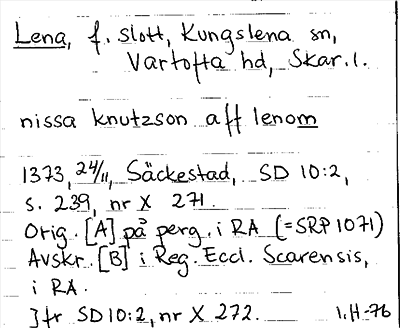 Lena, f. slott, Kungslena sn,
Vartofta hd, Skar. l.
nissa knutzson aff lenom
1373, 24/11, Säckestad, SD 10:2,
s. 239, nr X 271.
Orig. [A] på perg. i RA (=SRP 1071)
Avskr. [B] i Reg. Eccl. Scarensis,
i RA.
Jfr SD 10:2, nr X 272. 1. H-76